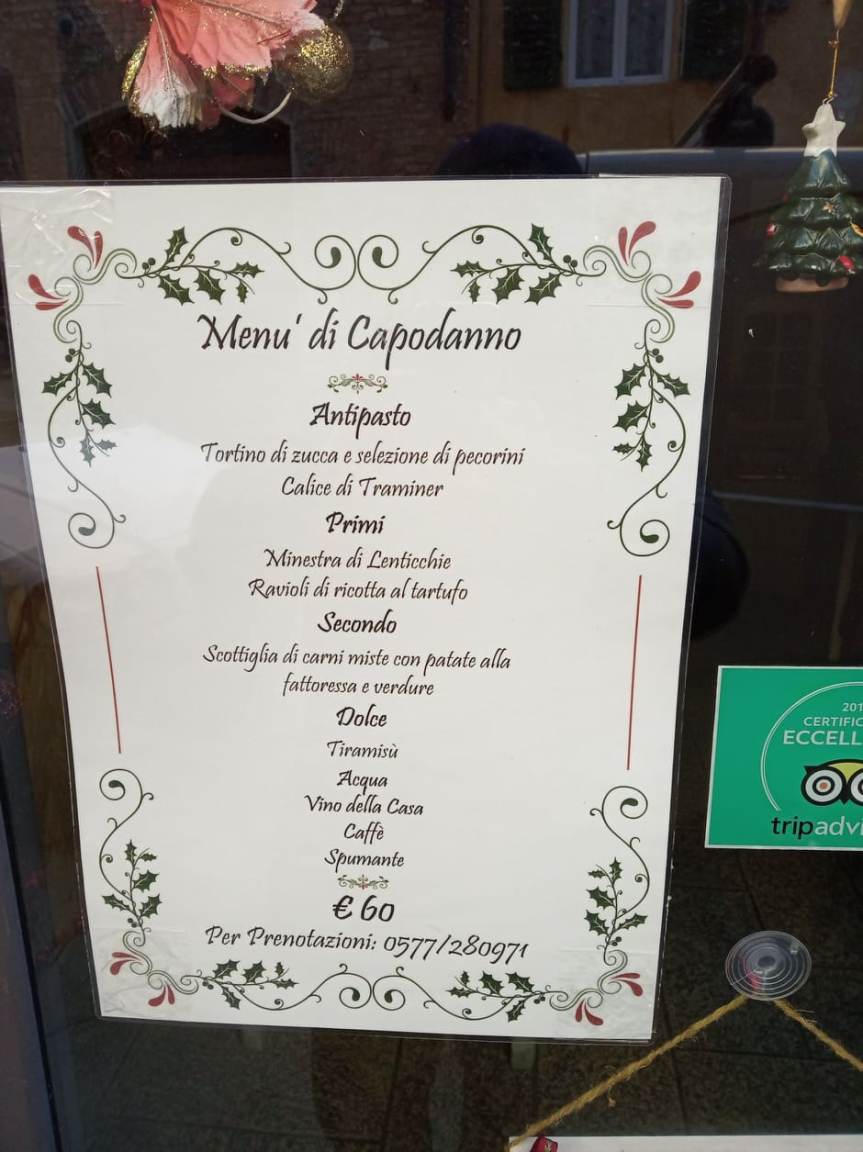 Menu' di Capodanno
Antipasto
Tortino di zucca e selezione di pecorini
Calice di Traminer
Primi
Minestra di Lenticchie
Ravioli di ricotta al tartufo
Secondo
Scottiglia di carni miste con patate alla
fattoressa e verdure
Dolce
Tiramisù
Acqua
Vino della Casa
Caffè
Spumante
€ 60
Per Prenotazioni: 0577/280971